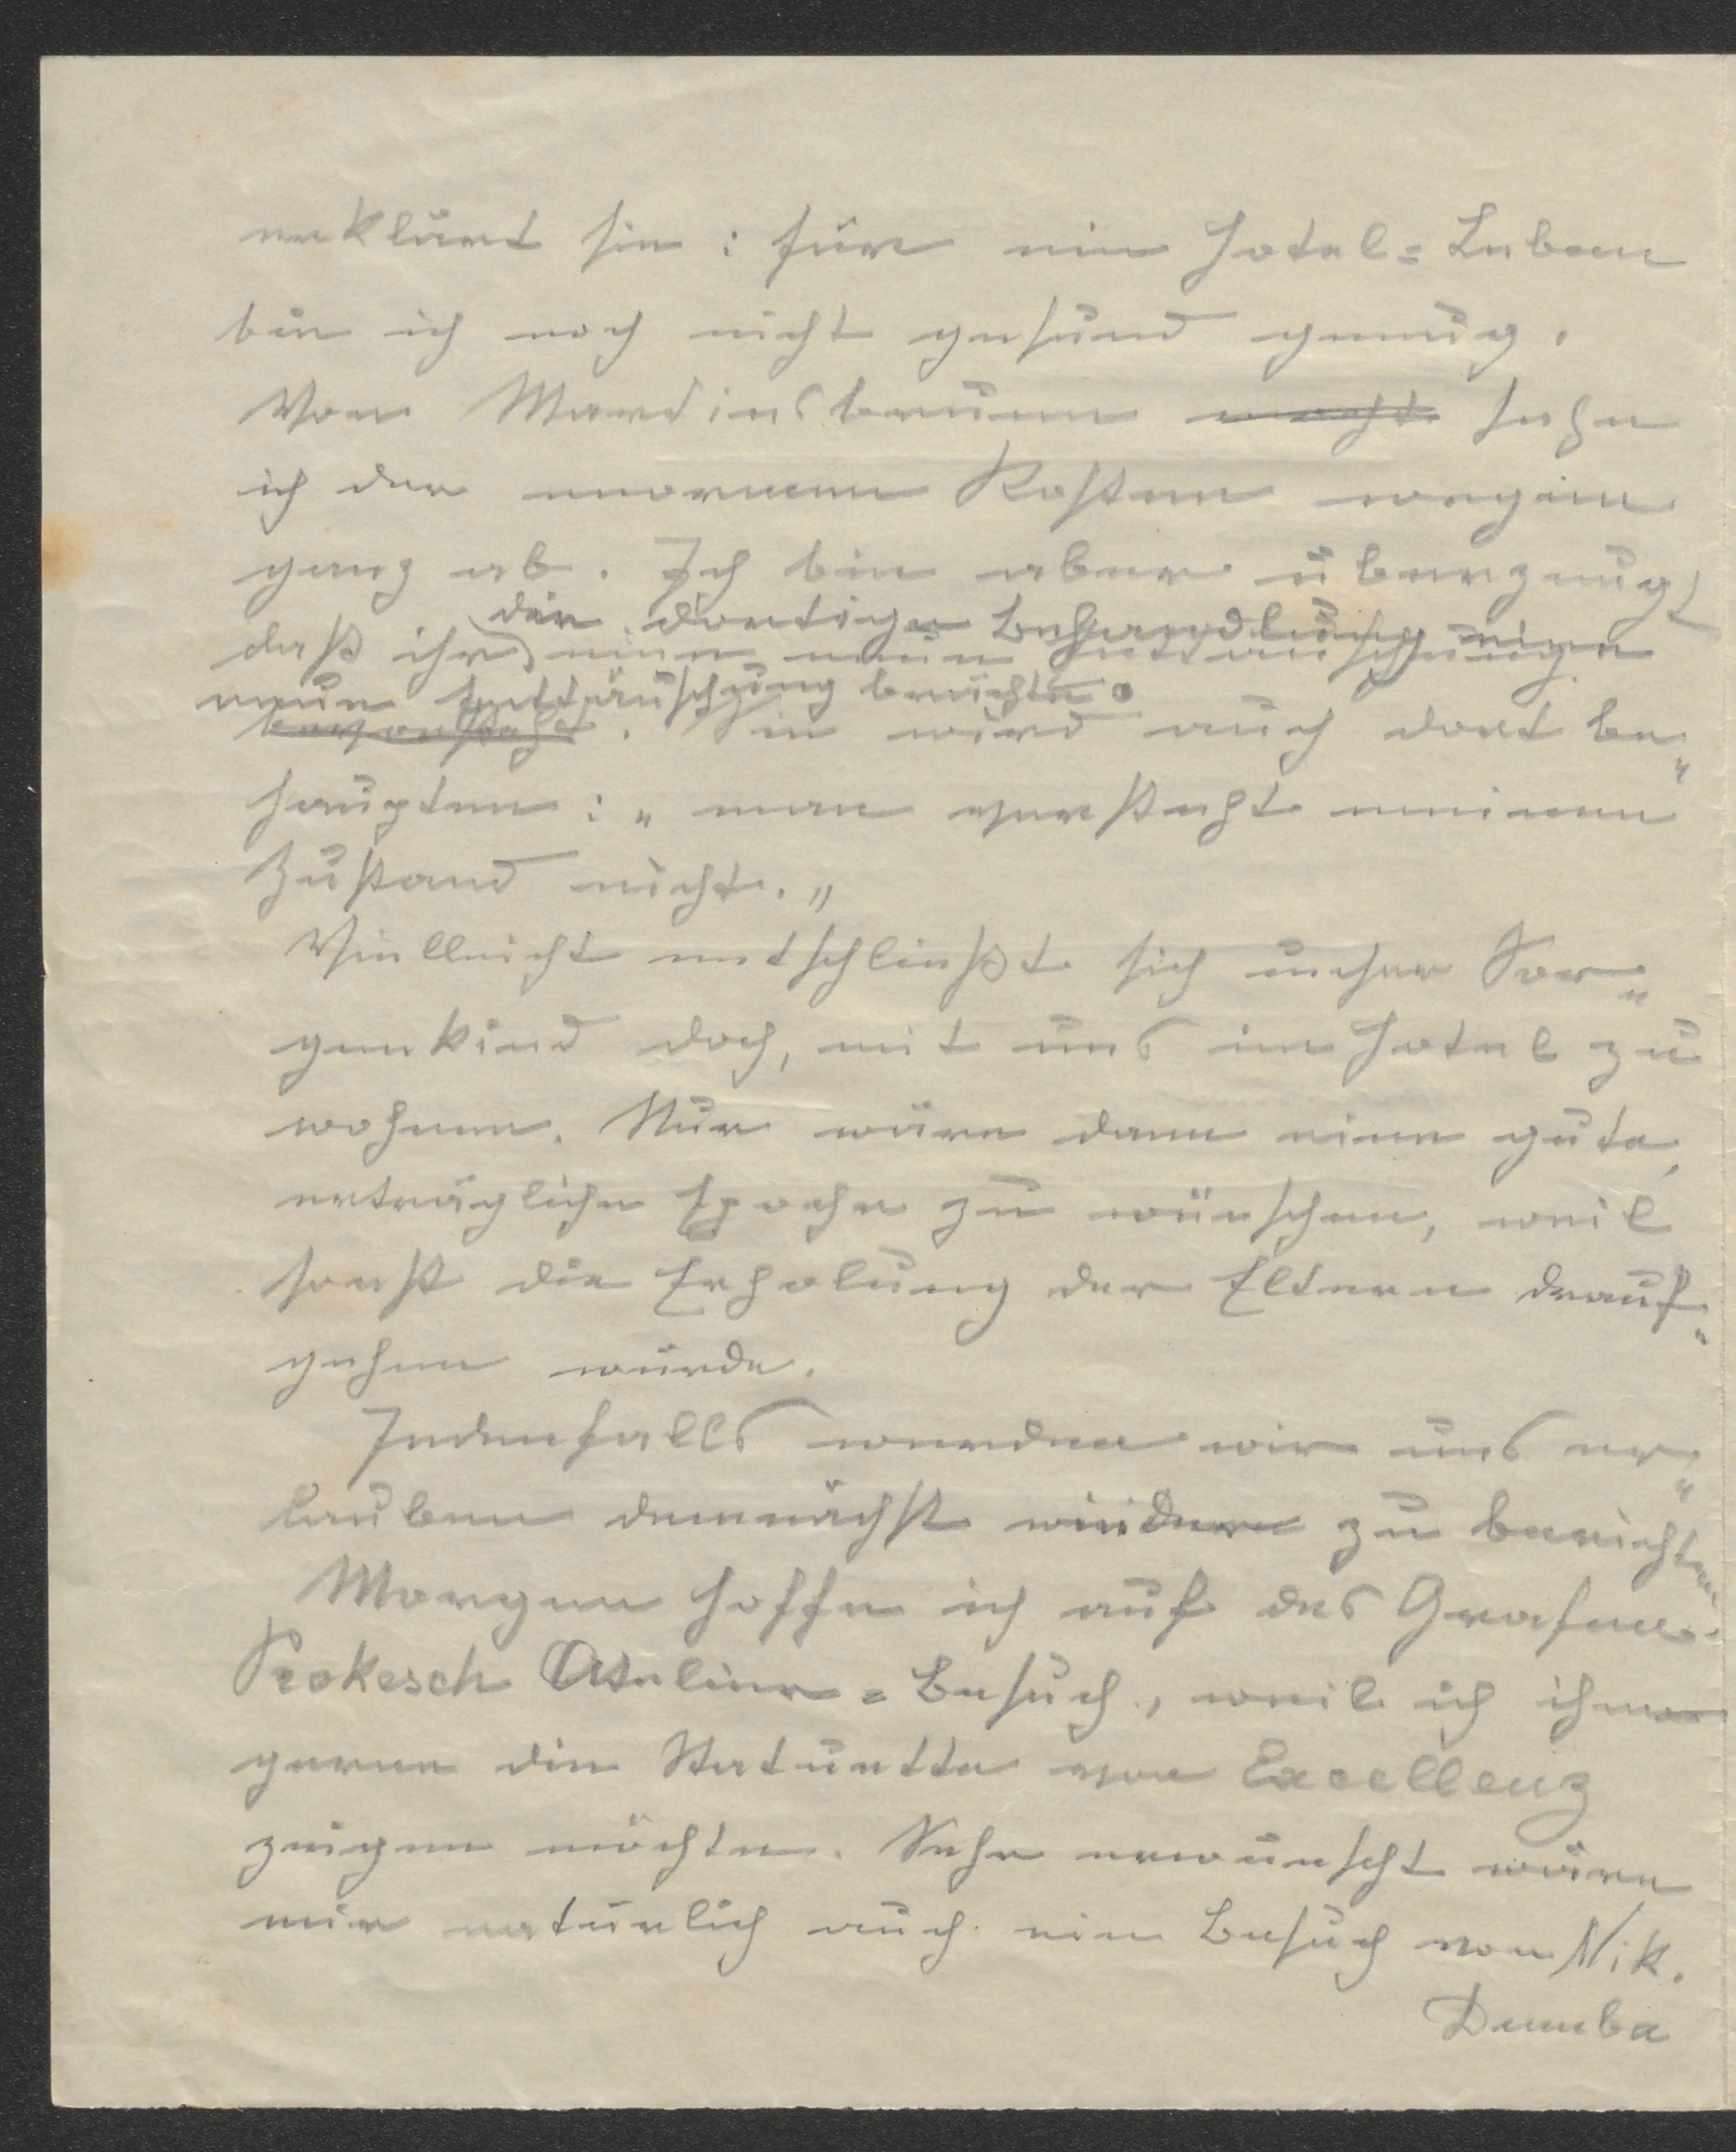 erklärt sie: für ein Hotel=Leben
bin ich noch nicht gesund genug.
Von Martinsbrunn sehe
ich der enormen Kosten wegen
ganz ab. Ich bin aber überzeugt
die dortige Behandlung eine
daß ihr eine neue Enttäuschung
neue Enttäuschung brächte.
bevorsteht. Sie wird auch dort be„
haupten: „man versteht meinen
Zustand nicht.„
Vielleicht entschließt sich unser Sor„
genkind doch, mit uns im Hotel zu
wohnen. Nur wäre dann eine gute,
erträgliche Epoche zu wünschen, weil
sonst die Erholung der Eltern drauf„
gehen würde.
Jedenfalls werden wir uns er„
lauben demnächst wieder zu berichten
Morgen hoffe ich auf des Grafen
Prokesch Atelier=Besuch, weil ich ihm
gerne die Statuette von Excellenz
zeigen möchte. Sehr erwünscht wäre
mir natürlich auch ein Besuch von Nik.
Dumba